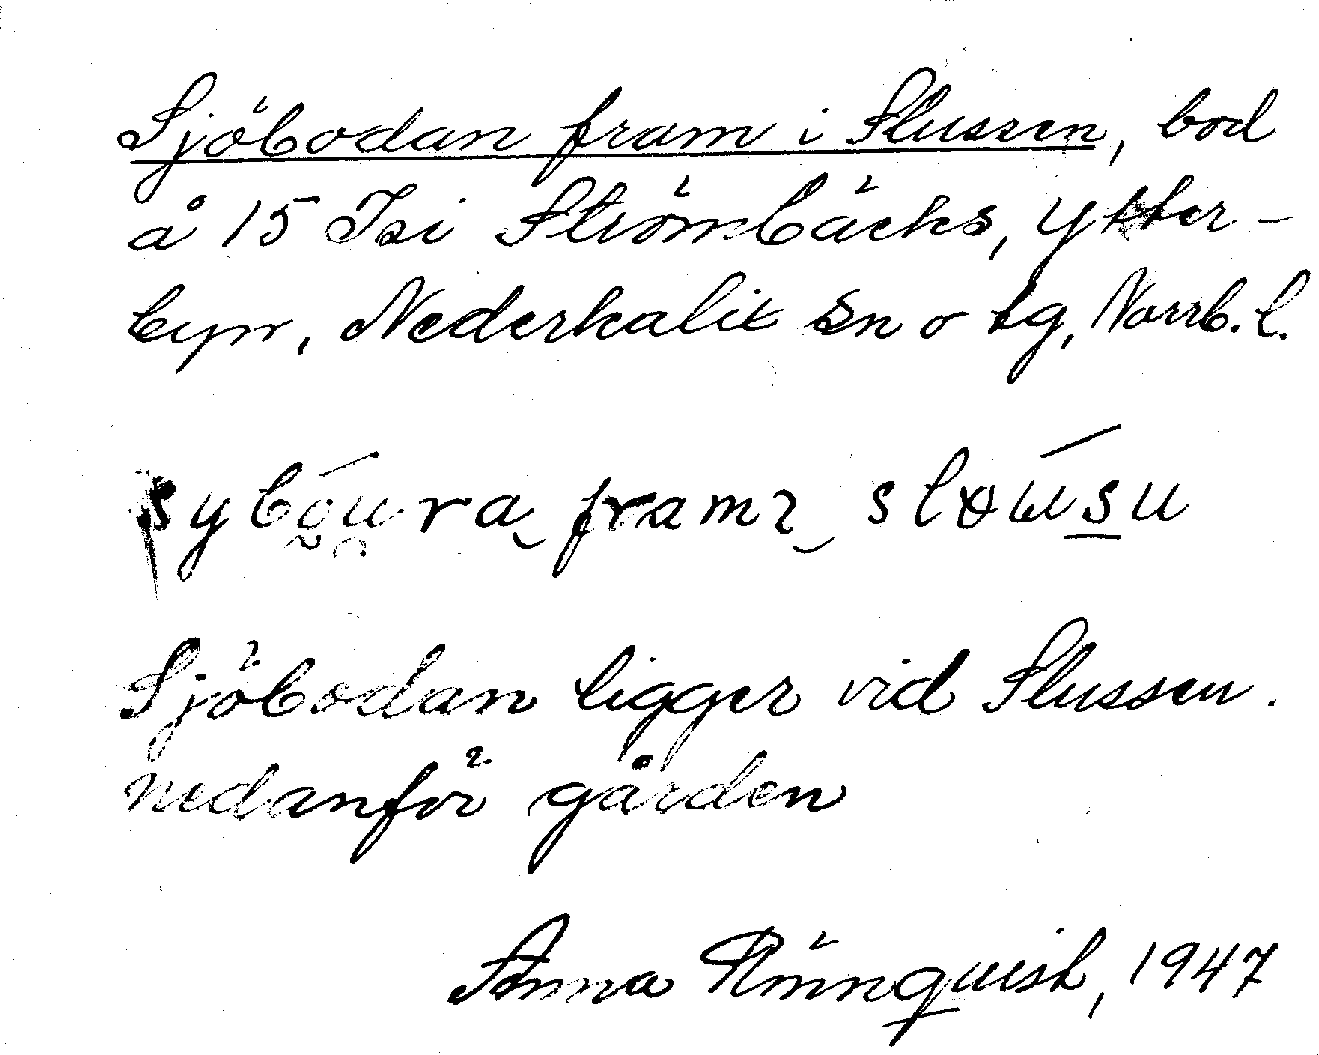 Sjöbodan fram i Slussen, bod
å 15 Isi Strömbäcks, Ytter-
byn, Nederkalix sn o tg, Norrb. l.
framɩ
Sjöbodan ligger vid Slussen.
nedanför gården
Anna Rönnquist, 1947